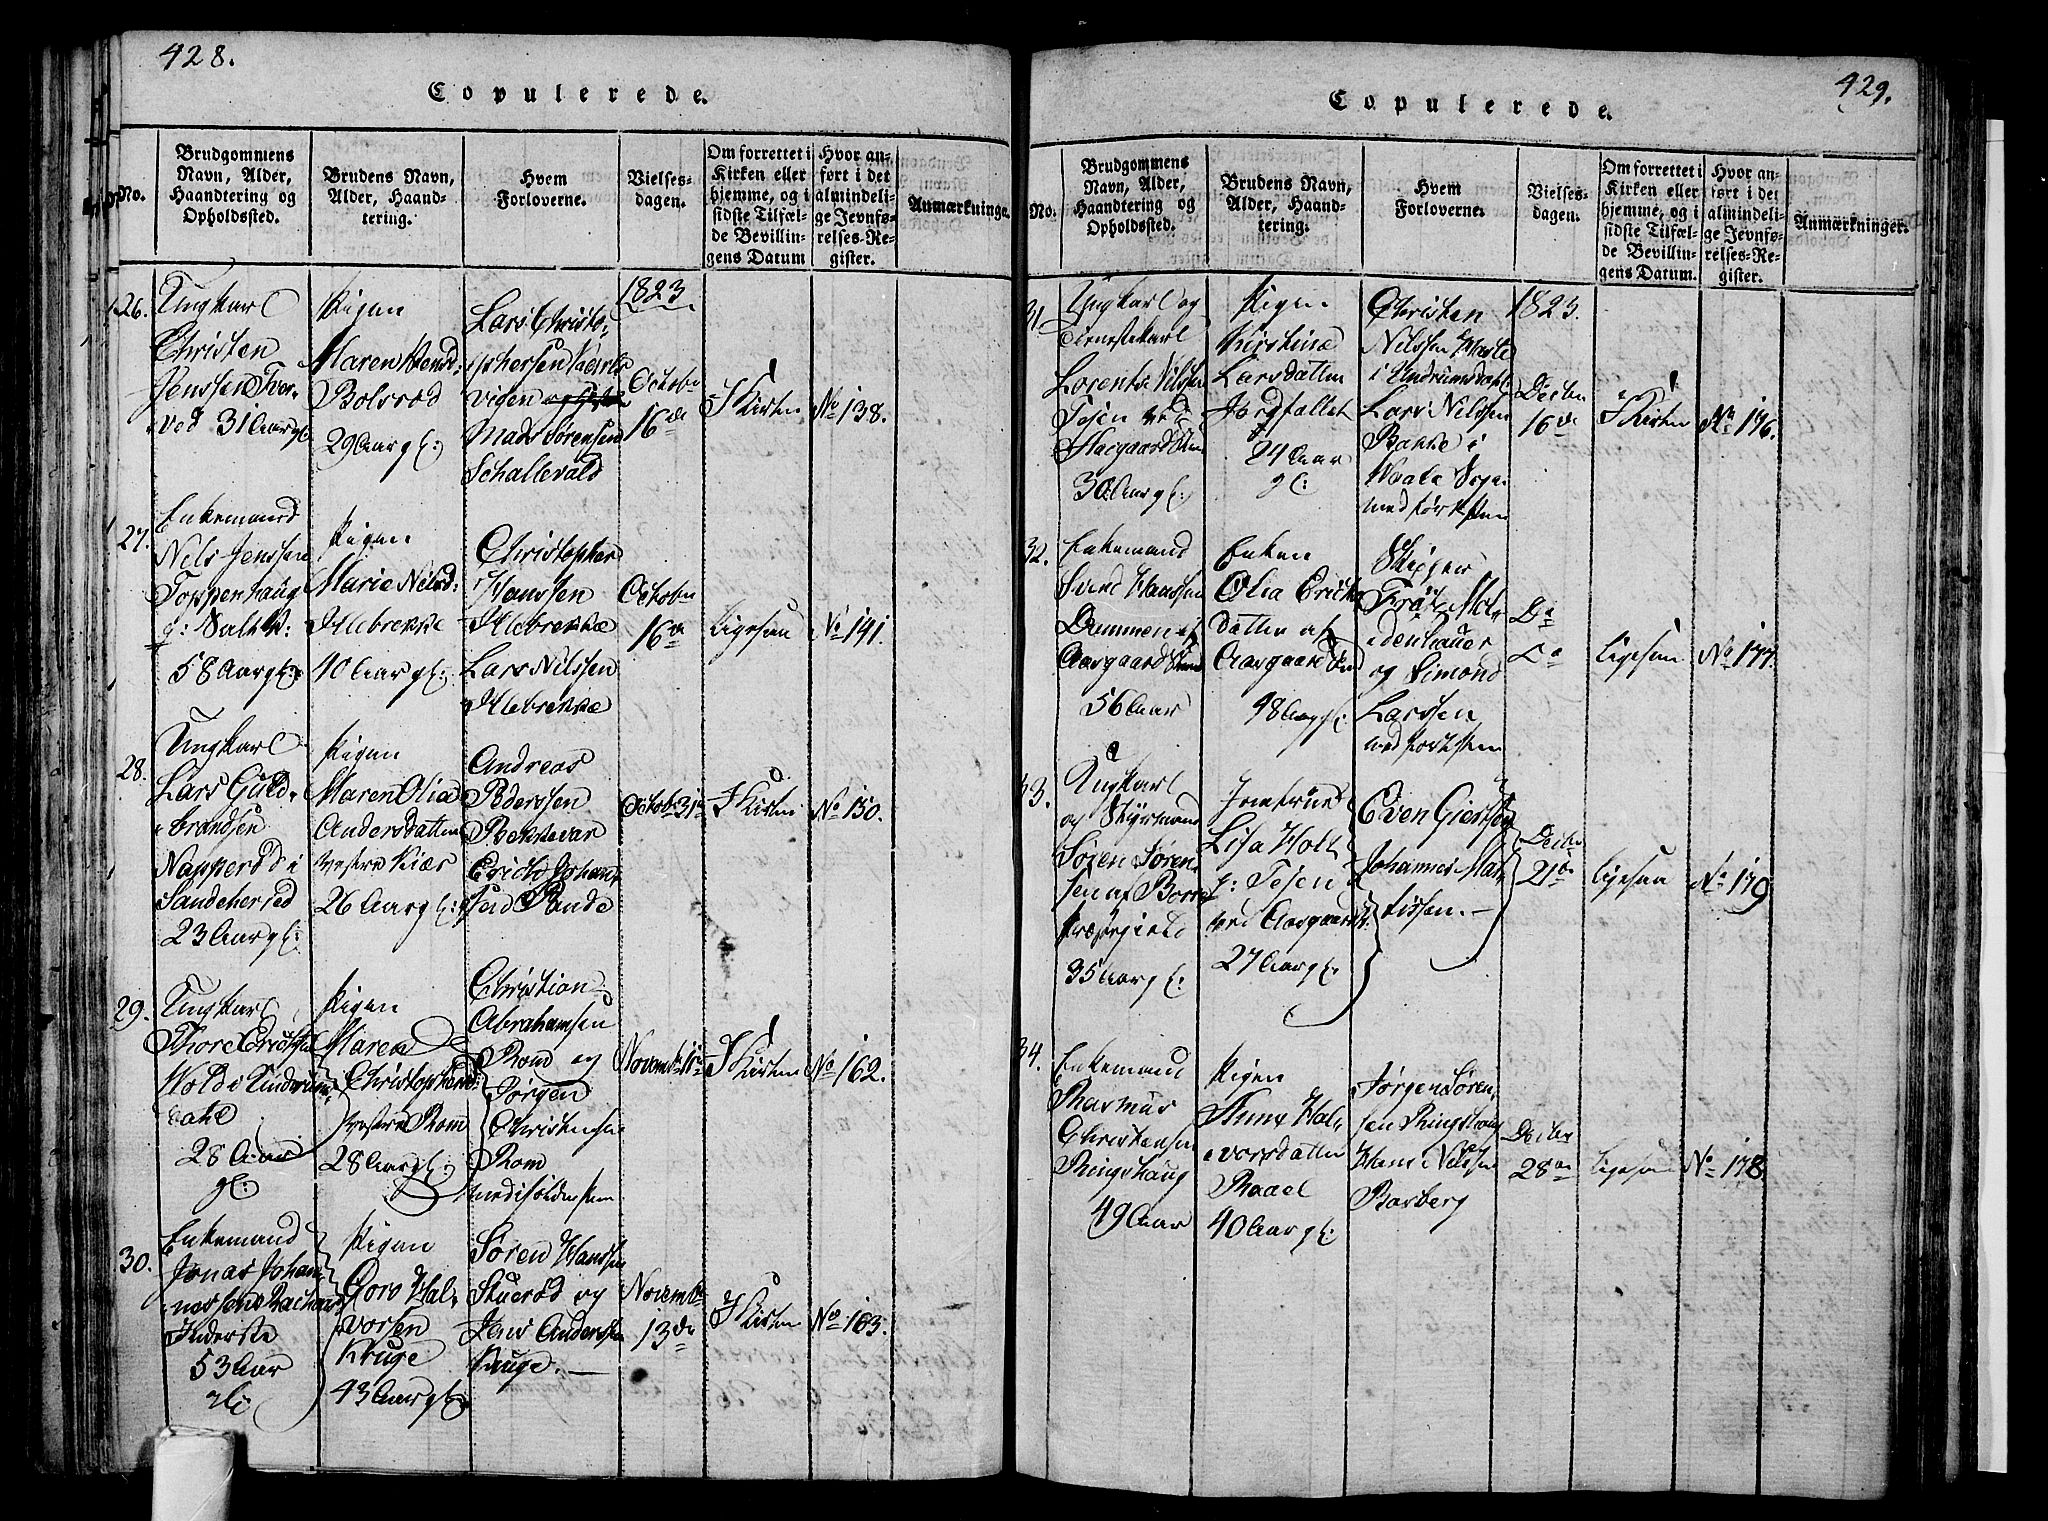 428.
Copulerede.
No.
Brudgommens
Navn, Alder,
Haandtering og
Opholdssted.
Brudens Navn,
Alder, Haand-
tering.
Hvem
Forloverne.
Vielses-
dagen.
Om forrettet i
Kirken eller
hjemme, og i
sidste Tilfæl-
de Bevillin-
gens Datum
Hvor an-
ført i det
almindeli-
ge Jevnfø-
relses-Re-
gister.
Anmærkninger.
26.
Ungkarl
Christen
Jenssen Tver-
ved 31 Aar gl:
Pigen
Maren
Bolsrød
29 Aar gl:
Lars Christo-
phersen
vigen
Mads Sørensen
Schallevald
1823
Octobr
16de
I Kirken
No 138.
27.
Enkemand
Nils Jenssen
Toppenhaug
58 Aar gl:
Pigen
Marie Nilsd:
Illebrekke
40 Aar gl:
Christopher
Hanssen
Illebrekke
Lars Nilssen
Illebrekke
October
16de
Ligesaa
No 141.
28.
Ungkarl
Lars Guld-
brandsen
Napperød i
Sandeherred
23 Aar gl:
Pigen
Maren Olia
Andersdatter
vestre Kiær
26 Aar gl:
Andreas
Pederssen
Bekkevar
Erich Johan-
sen Rande
Octobr 31te
I Kirken
No 150.
29.
Ungkarl
Thore Erichsen
Wold i Undrums-
dahl
28 Aar
gl:
Pigen
Maren
Christophersd:
vestre Rom
28 Aar gl:
Christian
Abrahamsen
Rom og
Jørgen
Christensen
Rom
Novembr 11te
I Kirken
No 162.
30.
Enkemand
Jonas Johan-
nessen
Inderste
53 Aar
gl:
Pigen
Goro Hal-
vorsen
Kruge
43 Aar gl.
Søren Hanssen
Stuerød og
Jens Anderssen
Kruge.
Novembr
13de
I Kirken
No 163.
429.
Copulerede.
No.
Brudgommens
Navn, Alder,
Haandtering og
Opholdssted.
Brudens Navn,
Alder, Haand-
tering.
Hvem
Forloverne.
Vielses-
dagen.
Om forrettet i
Kirken eller
hjemme, og i
sidste Tilfæl-
de Bevillin-
gens Datum.
Hvor an-
ført i det
almindeli-
ge Jevnfø-
relses-Re-
gister.
Anmærkninger.
31.
Ungkarl og
Tienestekarl
Lorents Nilssen
Fosen ved
30 Aar gl:
Pigen
Kirstine
Larsdatter
Jordfaldet
24 Aar
gl:
Christen
Nilssen
i Undrumsdahl
Lars Nilssen
Bakke i
Waale Sogn
1823.
Decbr
16de
I Kirken
No 176.
32.
Enkemand
Svend Hanssen
Dammen af
Aasgaard
56 Aar
Enken
Olia Erichs-
datter af
Aasgaard
48 Aar gl:
Skipper
Mol-
denhauer
og Simond
Larssen
Do
Do
Ligesaa
No 177.
33.
Ungkarl
og Styrmand
Søren Søren-
sen af Borre
Præstegield
35 Aar gl:
Jomfrue
Lisa Holt
ved Aasgaard
27 Aar gl:
Even Giertsen
Johannes Mat-
tissen.
Decbr
21de
Ligesaa
No 179
34.
Enkemand
Rasmus
Christensen
Ringshaug
49 Aar
Pigen
Anne Hal-
vorsdatter
Raael
40 Aar gl:
Jørgen Søren-
sen Ringshaug
Hans Nilssen
Basberg
Decbr
28de
Ligesaa
No 178.